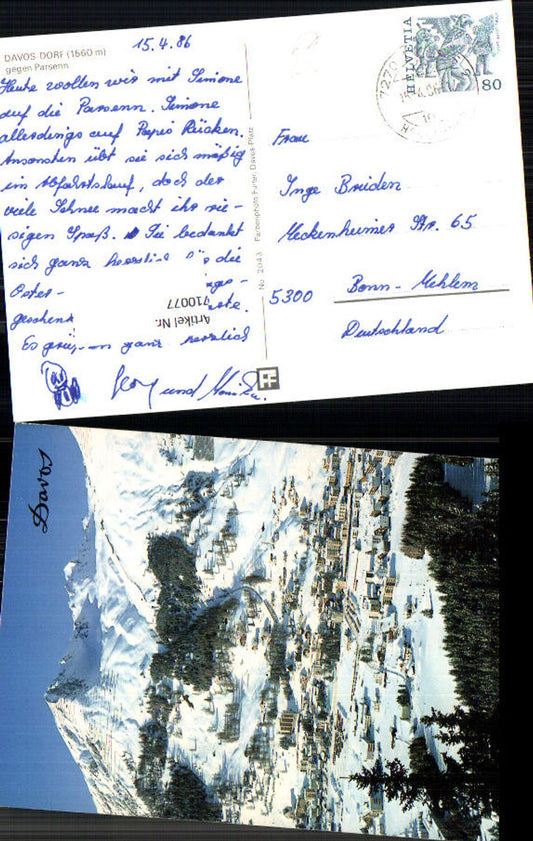 DAVOS-DORF (1560 m)
gegen Parsenn
15.4.86
Heute wollen wir mit Simone
auf die Parsenn. Simone
allerdings auf Papis Rücken.
Ansonsten übt sie sich mäßig
im Abfahrtslauf, doch der
viele Schnee macht ihr rie-
sigen Spaß. Sie bedankt
sich ganz herzlic die
Oster-
geschenk te.
Es grüß en ganz herzlich
und Monika.
Artikel Nr.
710077
No 2043 Farbenphoto Furter, Davos-Platz
HELVETIA
80
7270
Frau
Inge Brüden
Meckenheimer Str. 65
5300 Bonn-Mehlem
Deutschland
Davos